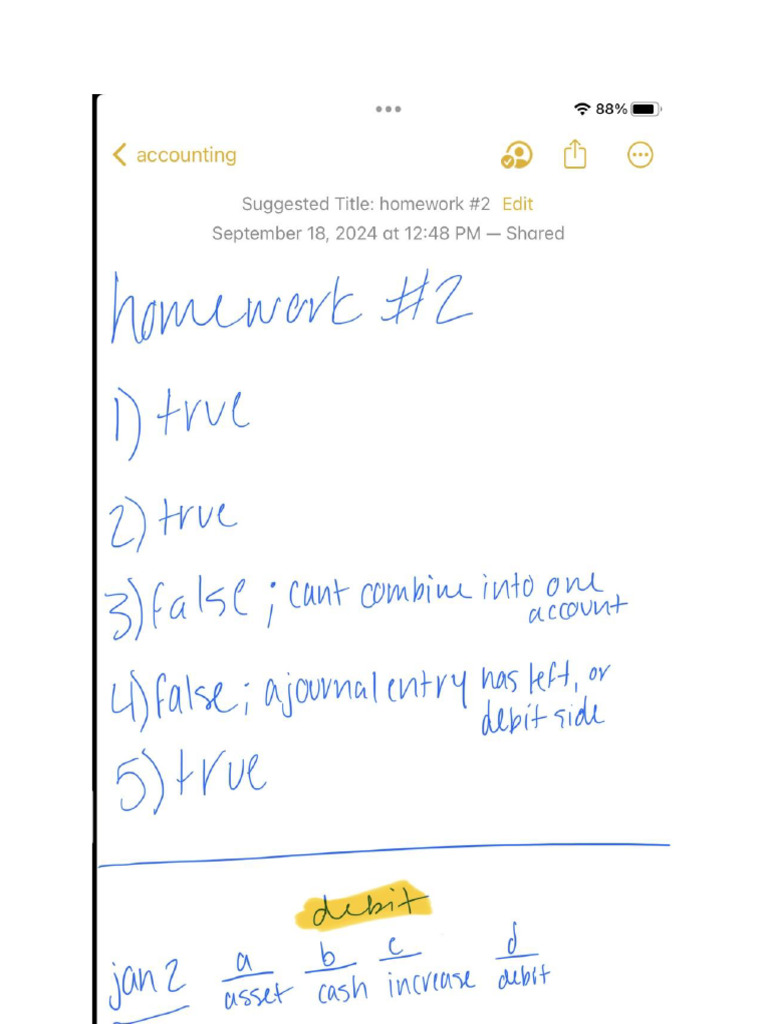 88%
accounting
Suggested Title: homework #2 Edit
September 18, 2024 at 12:48 PM — Shared
homework #2
1) true
2) true
3) false; cant combine into one
account
4) false; a journal entry has left, or
debit side
5) true
debit
a b c d
jan 2 asset cash increase debit